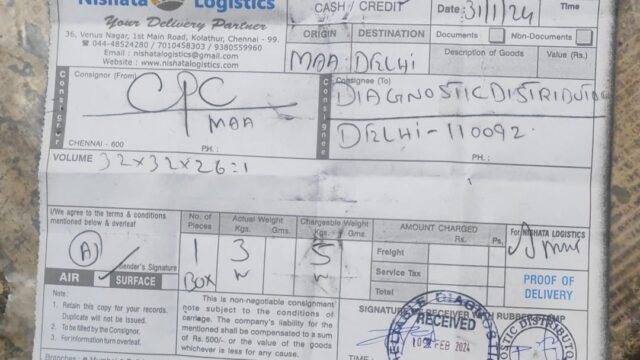 Nishata Logistics
Your Delivery Partner
36, Venus Nagar, 1st Main Road, Kolathur, Chennai - 99.
☎ 044-48524280 / 7010458303 / 9380559960
Email : nishatalogistics.com
Website : www.nishatalogistics.com
CASH / CREDIT
Date : 31/1/24
Time
ORIGIN DESTINATION
MAA DELHI
Documents Non-Documents
Description of Goods Value (Rs.)
Consignor
Consignor (From)
CPC
MAA
CHENNAI - 600 PH. :
Consignee
Consignee (To)
DIAGNOSTIC DISTRIBUTOR
DELHI - 110092.
PH. :
VOLUME 32×32×26=1
I/We agree to the terms & conditions
mentioned below & overleaf
A
Sender's Signature
AIR SURFACE
No. of Pieces
1
BOX
Actual Weight
Kgs. Gms.
3
Chargeable Weight
Kgs. Gms.
5
AMOUNT CHARGED
Rs. Ps.
Freight
Service Tax
Total
For NISHATA LOGISTICS
PROOF OF
DELIVERY
Note :
1. Retain this copy for your records.
Duplicate will not be issued.
2. To be filled by the Consignor.
3. For information turn overleaf.
This is non-negotiable consignment
note subject to the conditions of
carriage. The company's liability for the
mentioned shall be compensated to a sum
of Rs. 500/- or the value of the goods
whichever is less for any cause.
SIGNATURE RECEIVER WITH RUBBER STAMP
RECEIVED
FEB 2024
Branches :